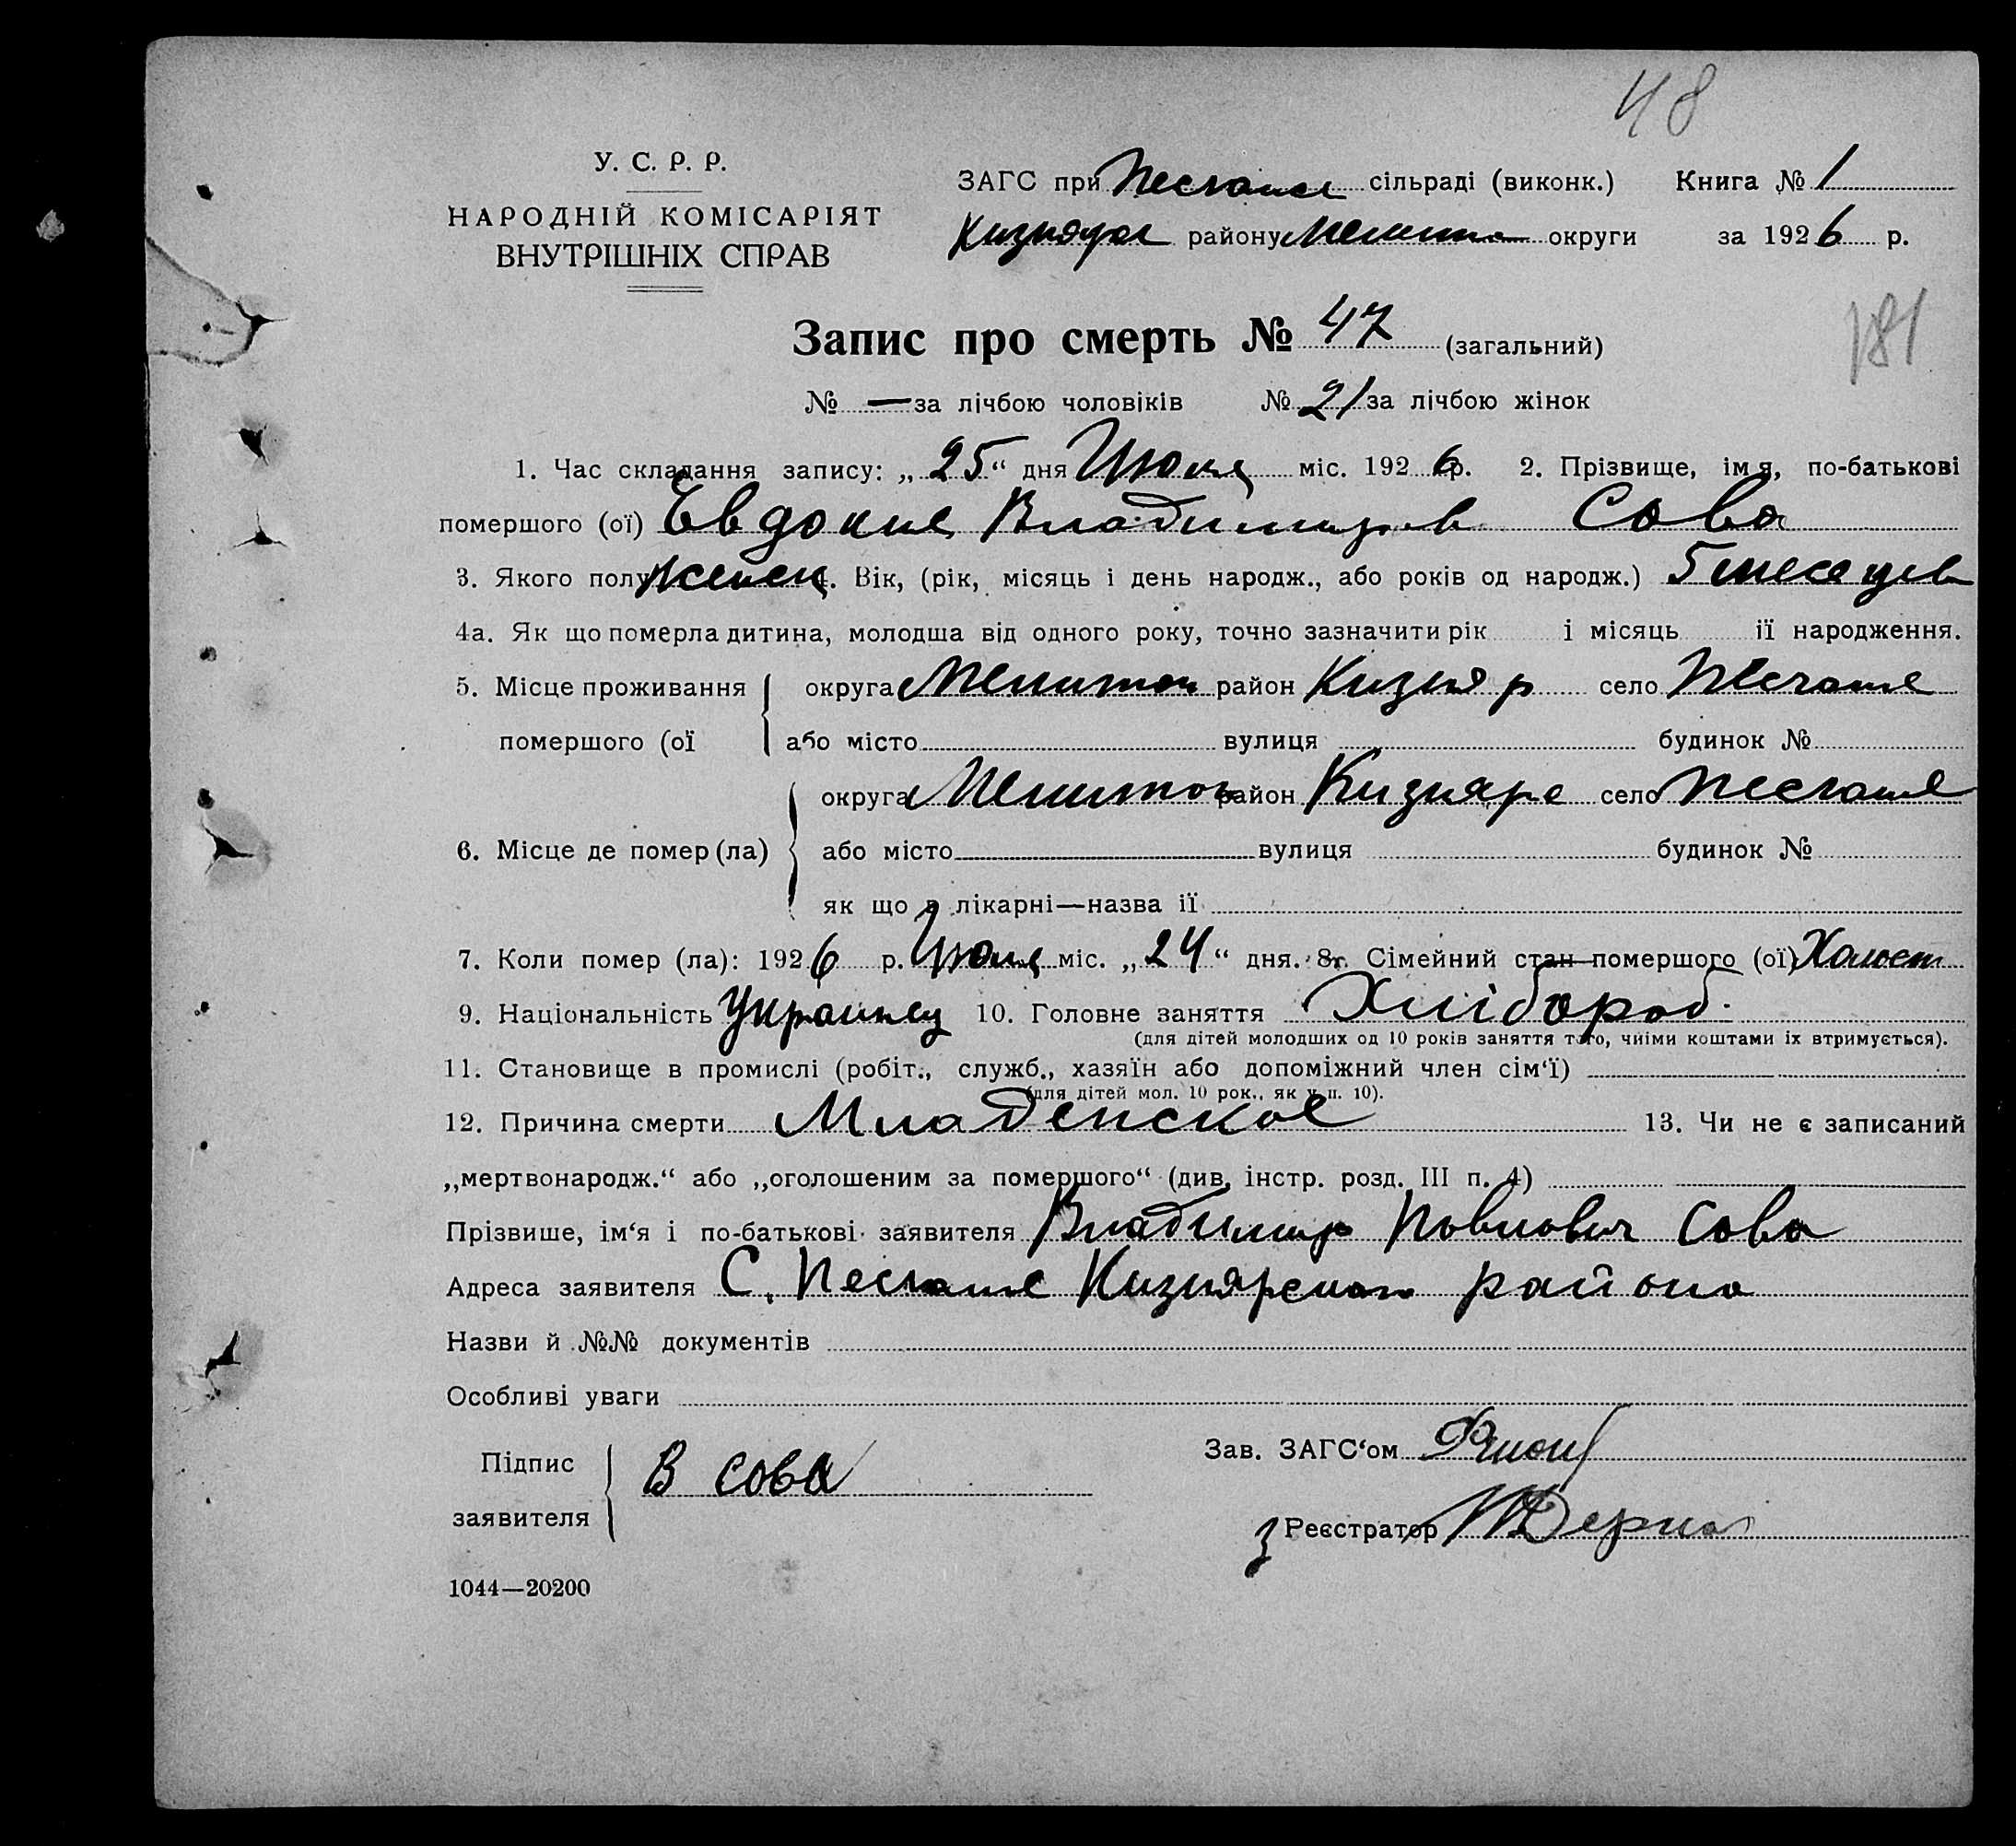 48
У. С. Р. Р.
НАРОДНІЙ КОМІСАРІЯТ
ВНУТРІШНІХ СПРАВ
ЗАГС при сільраді (виконк.) Книга № 1
району округи за 1926 р.
181
Запис про смерть № 47 (загальний)
№ — за лічбою чоловіків № 21 за лічбою жінок
1. Час складання запису: „25“ дня міс. 1926 р. 2. Прізвище, імя, по-батькові
помершого (ої) Евдокие Владимиров Сова
3. Якого полу женск 4. Вік, (рік, місяць і день народж., або років од народж.) 5 месецев
4а. Як що померла дитина, молодша від одного року, точно зазначити рік і місяць її народження.
5. Місце проживання округа Мелитоп район Кизияр село Песчане
помершого (ої або місто вулиця будинок №
округа Мелитоп район Кизияре село Песчане
6. Місце де помер (ла) або місто вулиця будинок №
як що в лікарні—назва її
7. Коли помер (ла): 1926 р. міс. „24“ дня. 8. Сімейний стан помершого (ої) Холост
9. Національність Украинец 10. Головне заняття Хлібороб.
(для дітей молодших од 10 років заняття того, чиїми коштами їх втримується).
11. Становище в промислі (робіт., служб., хазяїн або допоміжний член сім‘ї)
(для дітей мол. 10 рок., як у п. 10).
12. Причина смерти Младенское 13. Чи не є записаний
„мертвонародж.“ або „оголошеним за помершого“ (див. інстр. розд. III п. 4)
Прізвише, ім‘я і по-батькові заявителя Владимир Павлович Сова
Адреса заявителя С. Песчане Кизиярского района
Назви й №№ документів
Особливі уваги
Підпис
заявителя В Сова
Зав. ЗАГС‘ом
з Реєстратор
1044—20200